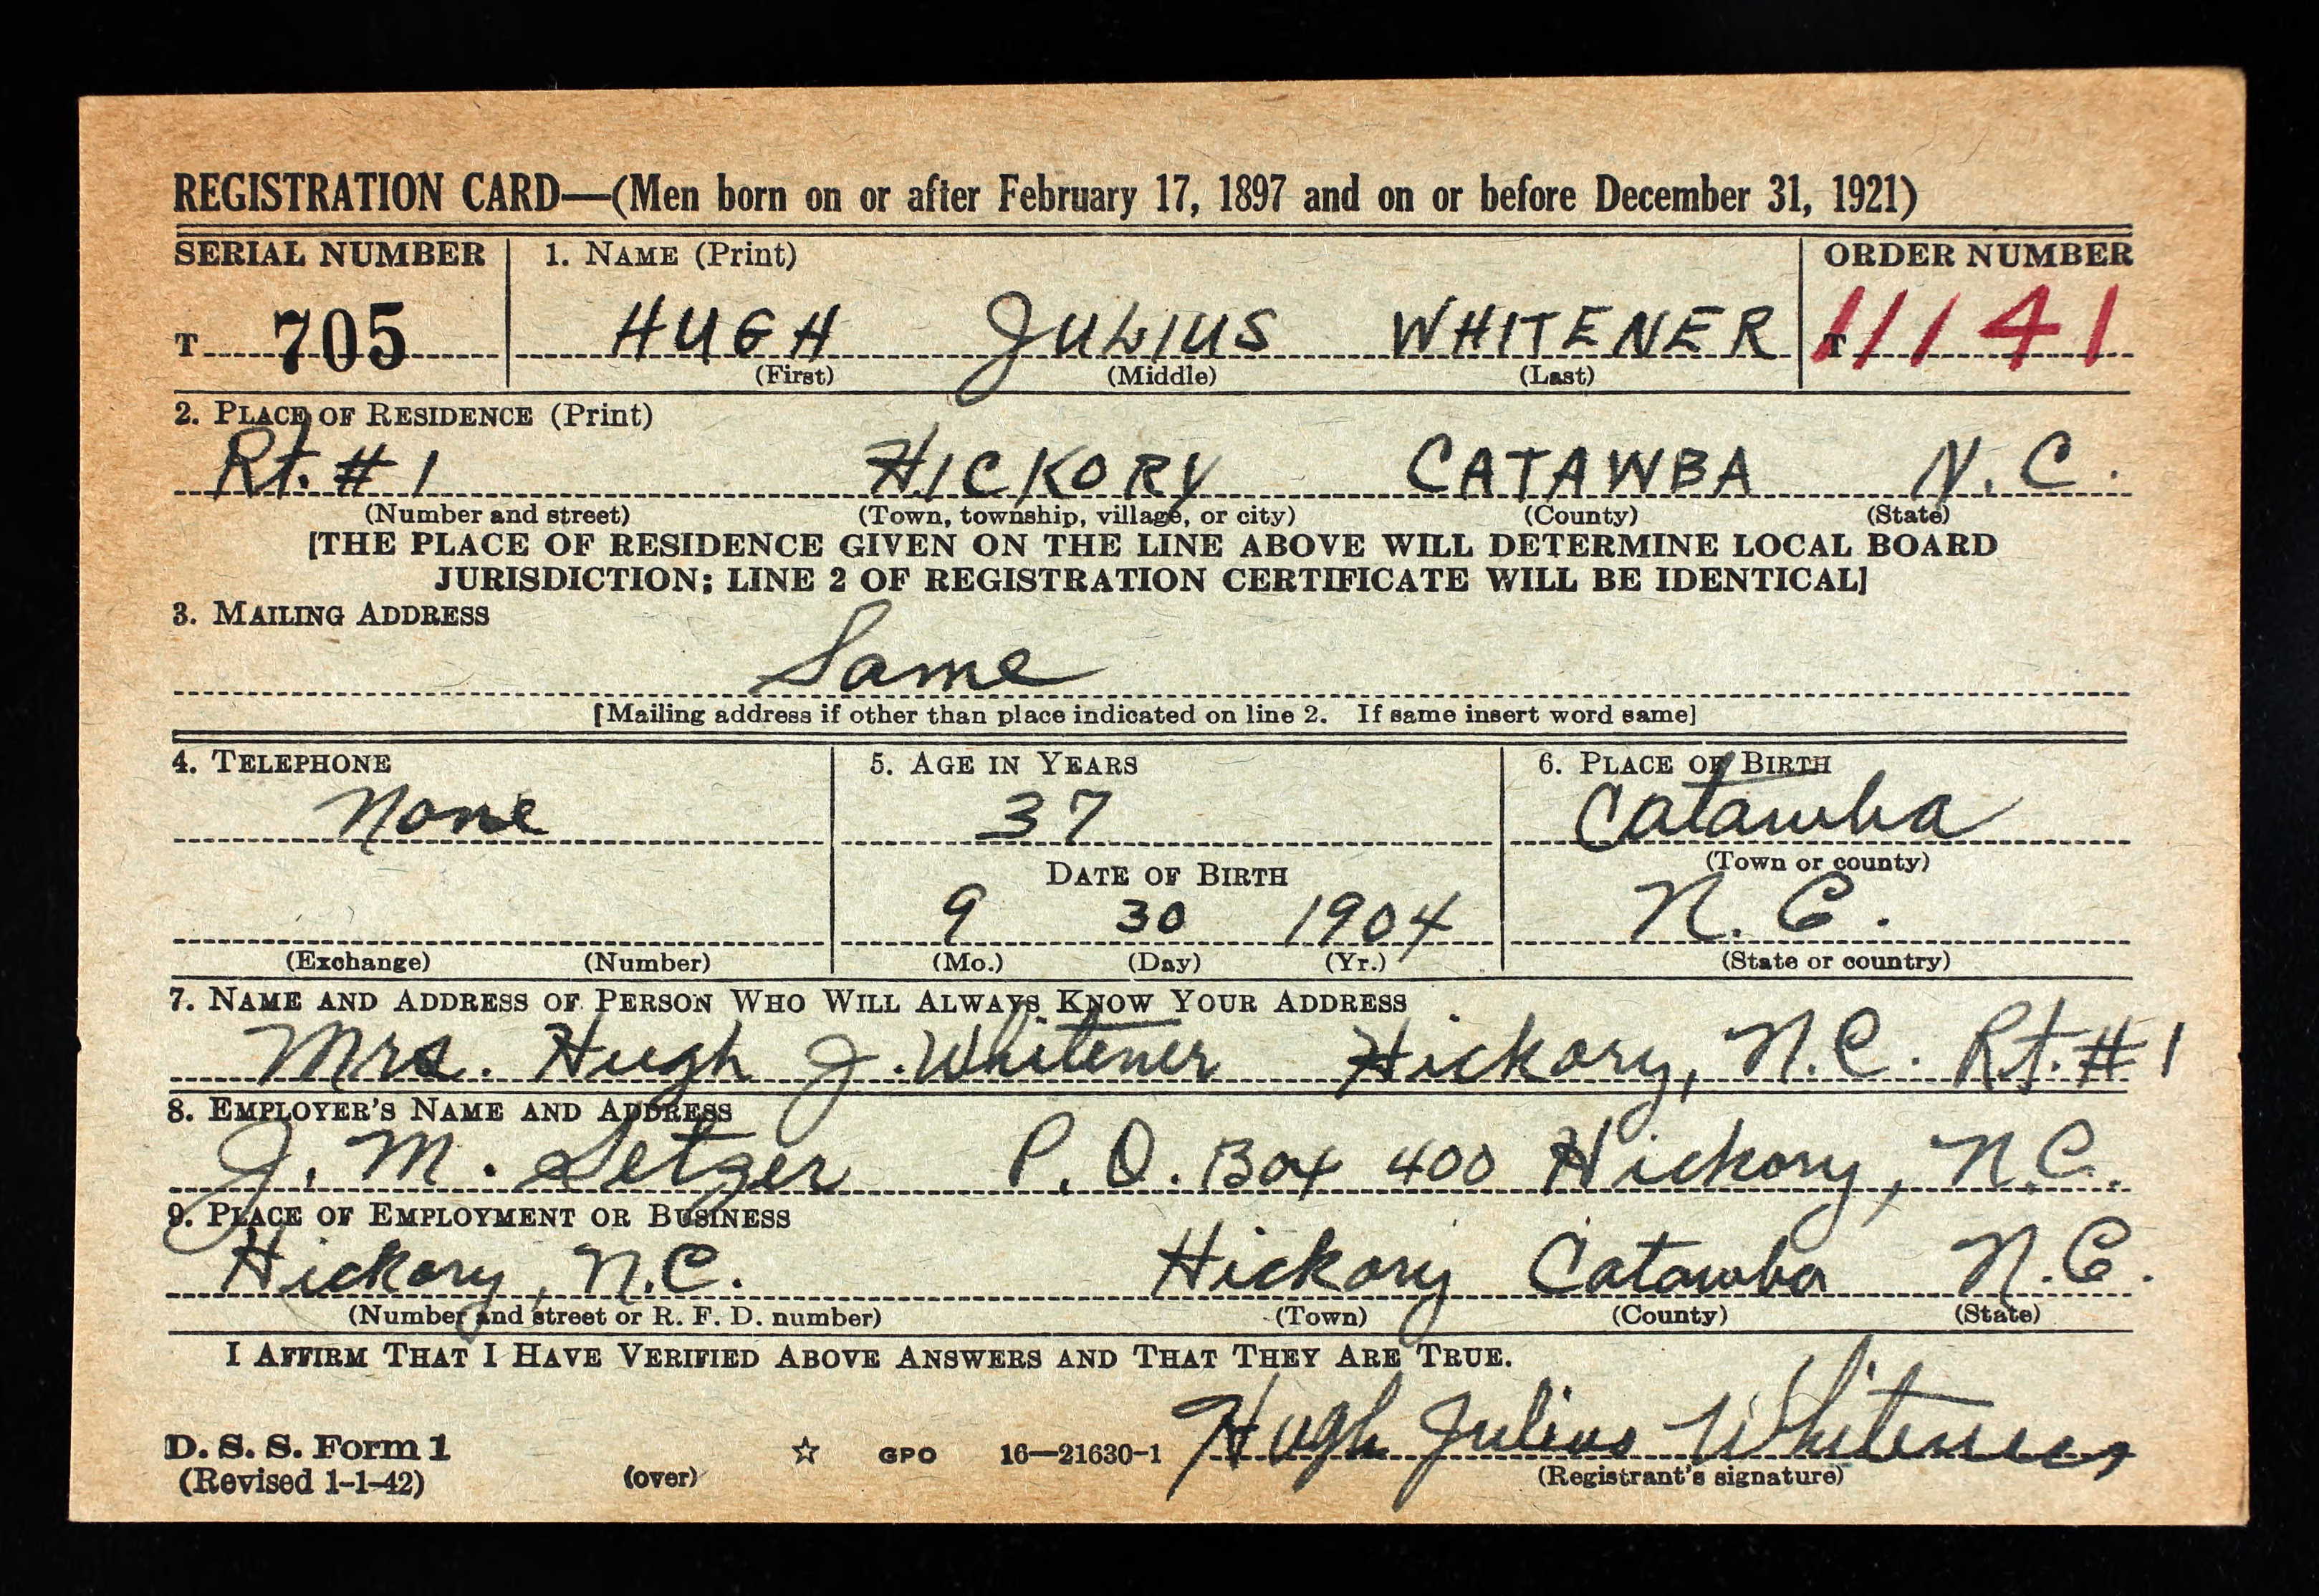 REGISTRATION CARD—(Men born on or after February 17, 1897 and on or before December 31, 1921)
SERIAL NUMBER 1. NAME (Print) ORDER NUMBER
T 705 HUGH JULIUS WHITENER T 11141
(First) (Middle) (Last)
2. PLACE OF RESIDENCE (Print)
Rt. # 1 HICKORY CATAWBA N.C.
(Number and street) (Town, township, village, or city) (County) (State)
[THE PLACE OF RESIDENCE GIVEN ON THE LINE ABOVE WILL DETERMINE LOCAL BOARD
JURISDICTION; LINE 2 OF REGISTRATION CERTIFICATE WILL BE IDENTICAL]
3. MAILING ADDRESS
Same
[Mailing address if other than place indicated on line 2. If same insert word same]
4. TELEPHONE 5. AGE IN YEARS 6. PLACE OF BIRTH
None 37 Catawba
DATE OF BIRTH (Town or county)
9 30 1904 N.C.
(Exchange) (Number) (Mo.) (Day) (Yr.) (State or country)
7. NAME AND ADDRESS OF PERSON WHO WILL ALWAYS KNOW YOUR ADDRESS
Mrs. Hugh J. Whitener Hickory, N.C. Rt. # 1
8. EMPLOYER'S NAME AND ADDRESS
J. M. Setzer P. O. Box 400 Hickory, N.C.
9. PLACE OF EMPLOYMENT OR BUSINESS
Hickory, N.C. Hickory Catawba N.C.
(Number and street or R. F. D. number) (Town) (County) (State)
I AFFIRM THAT I HAVE VERIFIED ABOVE ANSWERS AND THAT THEY ARE TRUE.
D. S. S. Form 1 ☆ GPO 16—21630-1 Hugh Julius Whitener
(Revised 1-1-42) (over) (Registrant's signature)